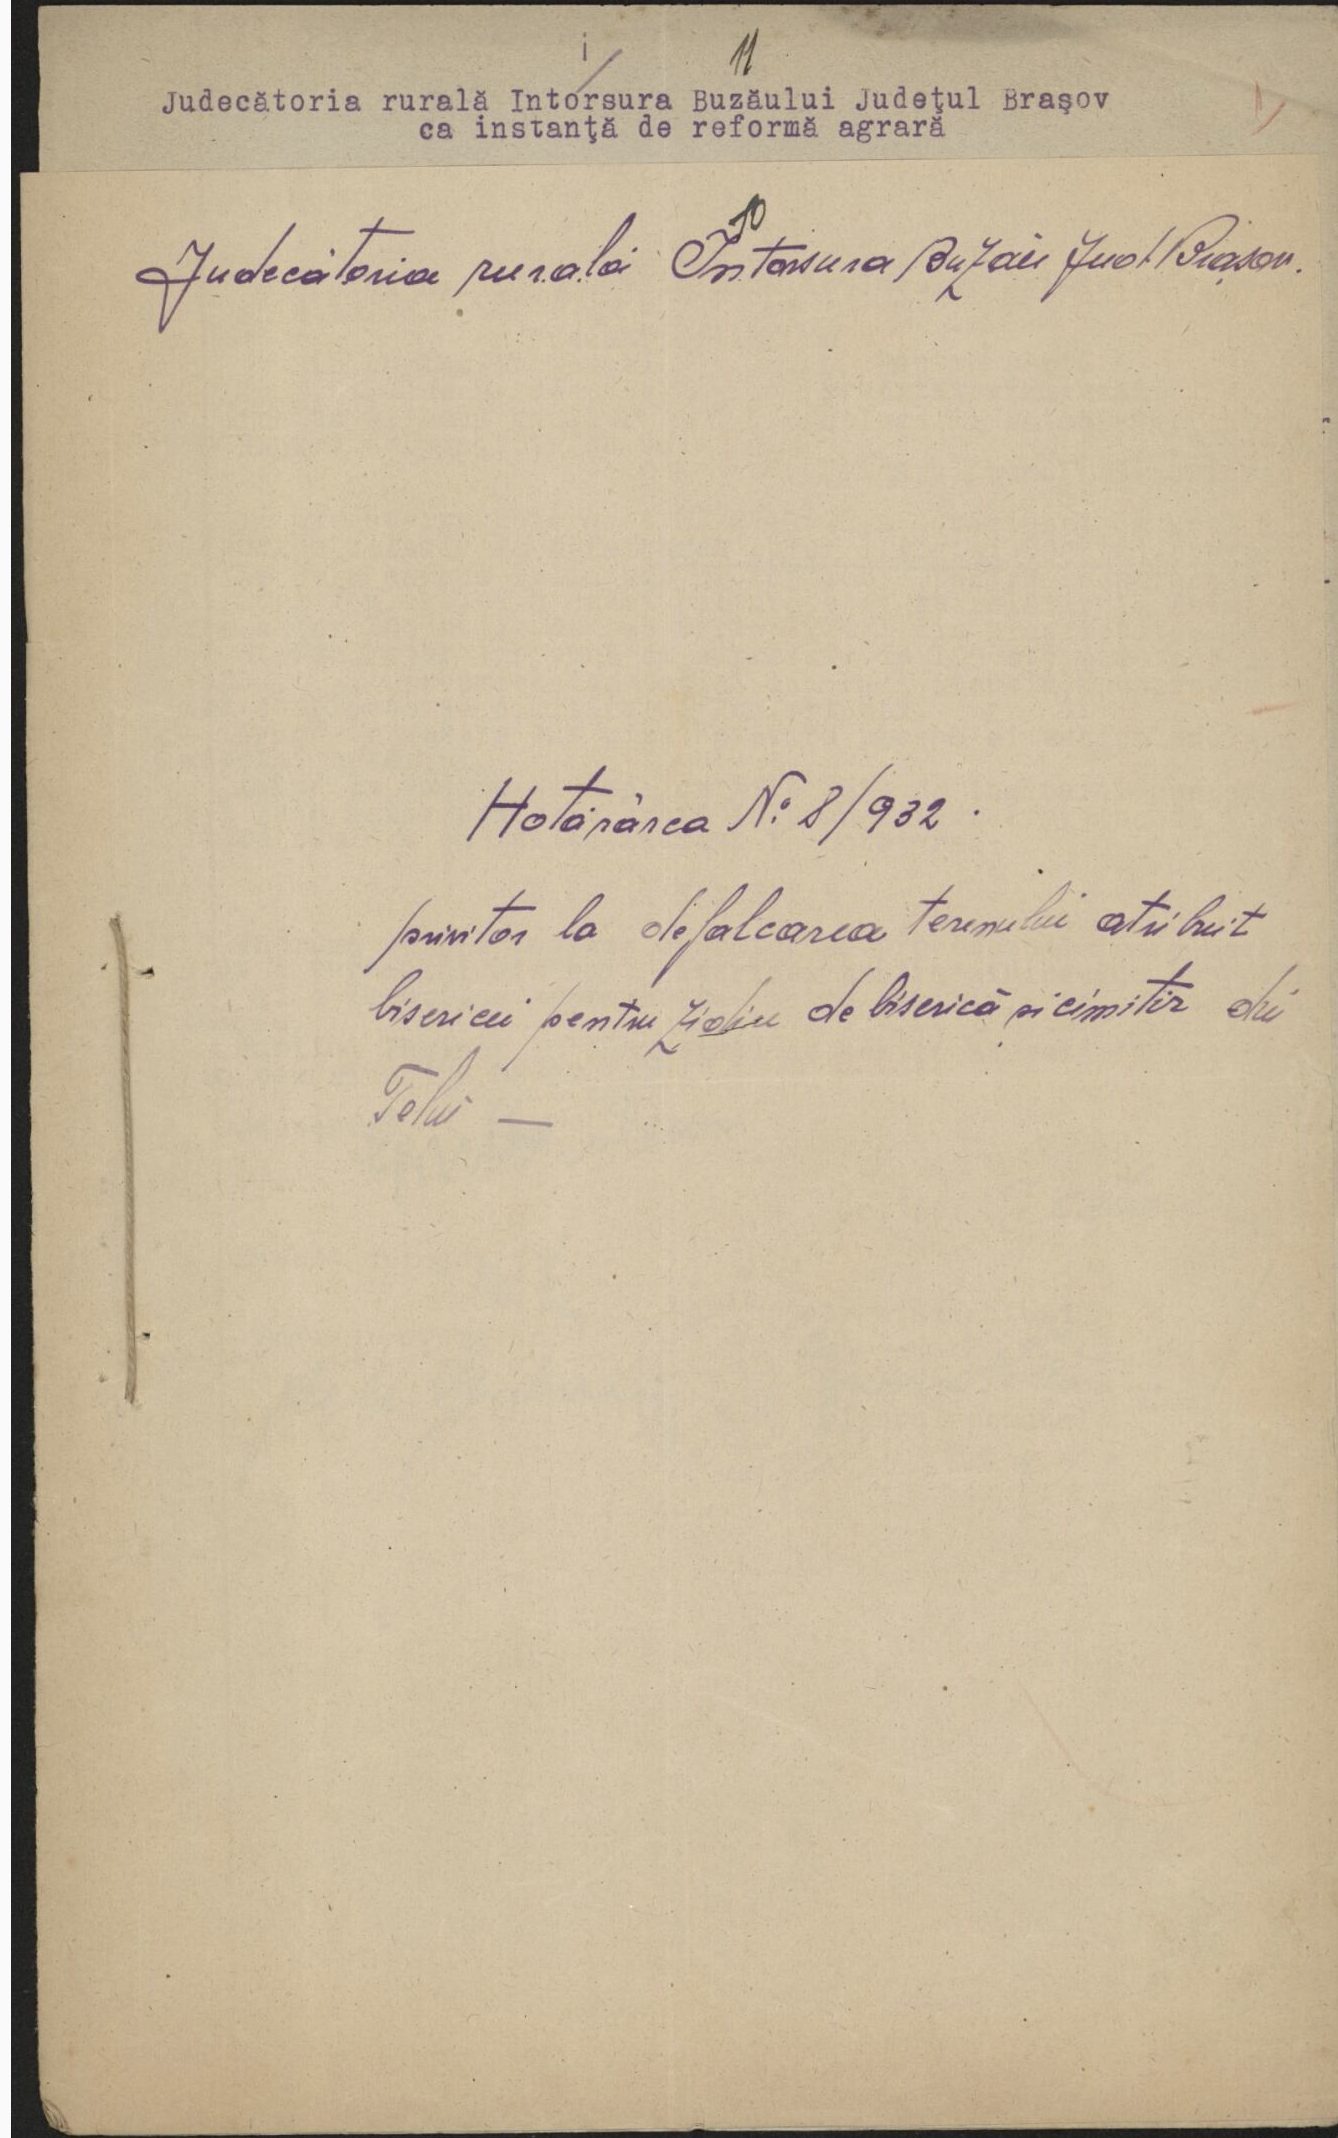 11
Judecătoria rurală Intorsura Buzăului Judeţul Braşov
ca instanţă de reformă agrară
10
Judecătoria rurală Întorsura Buzău Jud Brașov.
Hotărârea No 8/932.
privitor la defalcarea terenului atribuit
bisericii pentru de biserică și cimitir din